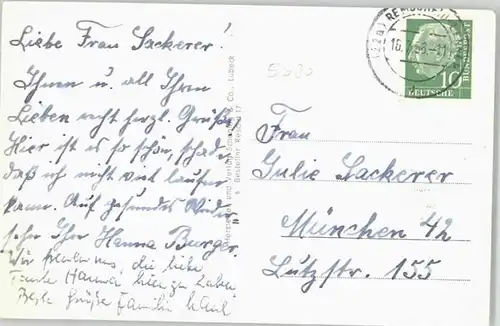 Liebe Frau Sackerer!
Ihnen u. all Ihren
Lieben recht herzl. Grüße,
Hier ist es so schön, schade
daß ich nicht viel laufen
kann. Auf gesundes Wieder
sehn Ihr Hanna Burger.
Wir freuen uns, die liebe
Tante Hanna hier zu haben
Beste Grüße Familie
Schöning & Co., Lübeck
REMSCHEID
10
DEUTSCHE
BUNDESPOST
Frau
Julie Sackerer
München 42
Lutzstr. 155